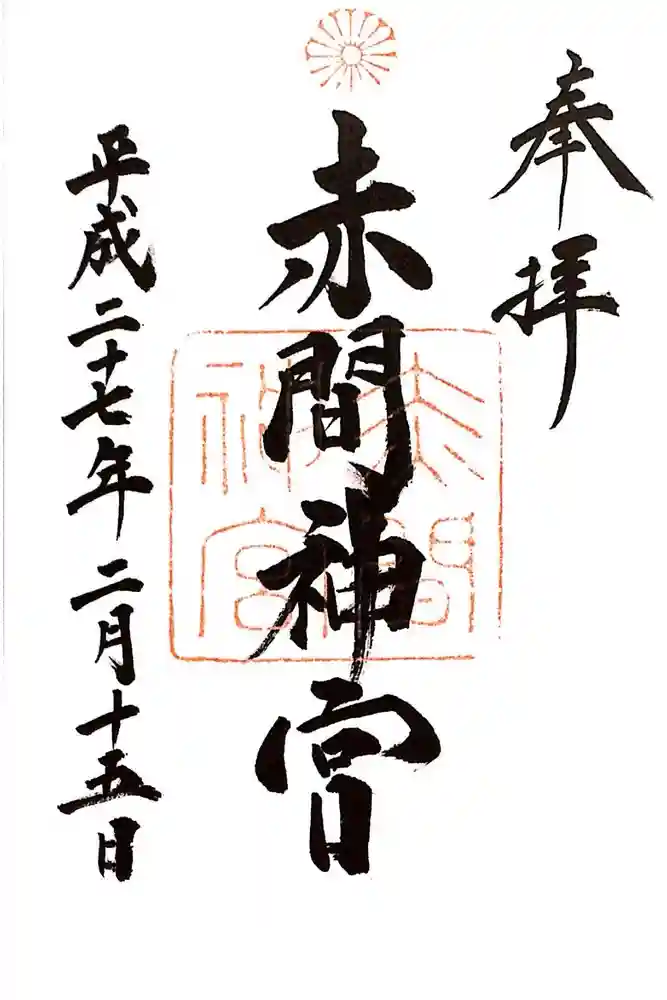 奉拝
赤間神宮
平成二十七年二月十五日
赤間
神宮